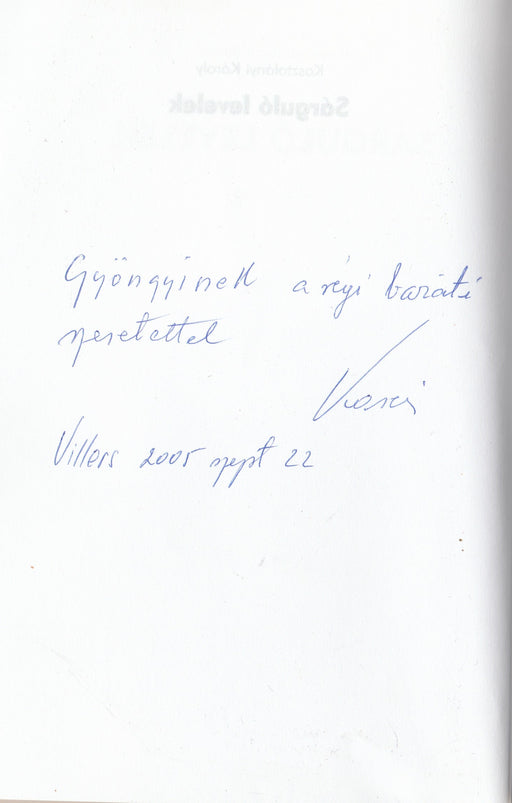 Kosztolányi Károly
Sárguló levelek
Gyöngyinek a régi baráti
szeretettel
Villers 2005 szept 22